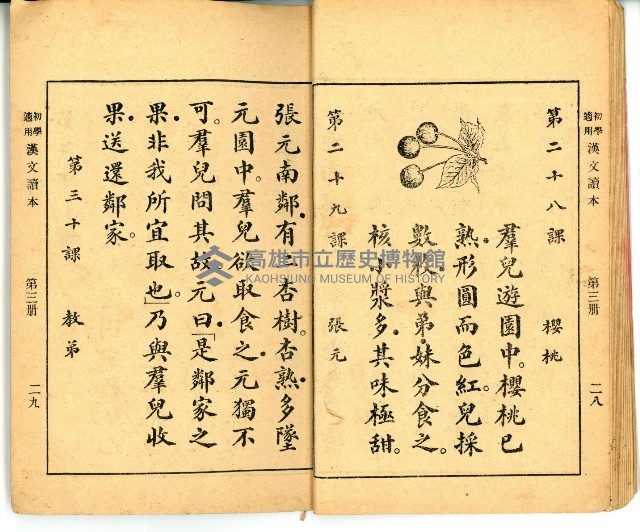 初學適用 漢文讀本 第三册 二八
第二十八課 櫻桃
羣兒遊園中。櫻桃已
熟。形圓而色紅。兒採
數枚。與弟妹分食之。
核小漿多。其味極甜。
第二十九課 張元
張元南鄰。有二杏樹。杏熟。多墜
元園中。羣兒欲取食之。元獨不
可。羣兒問其故。元曰。「是鄰家之
果。非我所宜取也。」乃與羣兒收
果。送還鄰家。
第三十課 教弟
初學適用 漢文讀本 第三册 二九
高雄市立歷史博物館
KAOHSIUNG MUSEUM OF HISTORY